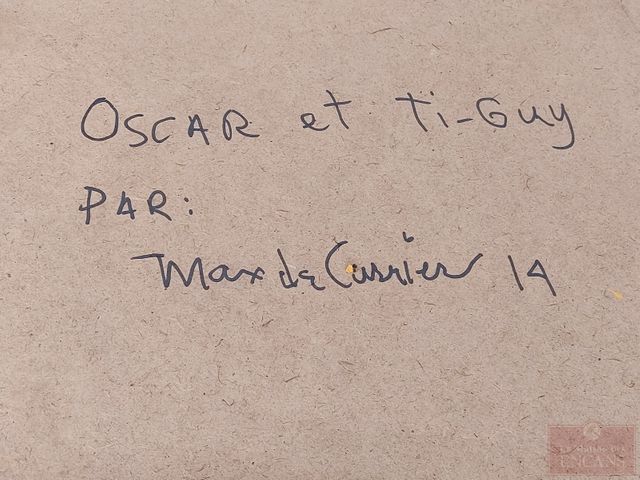 OSCAR et Ti-Guy
PAR:
Max de Currier 14
ENCANS